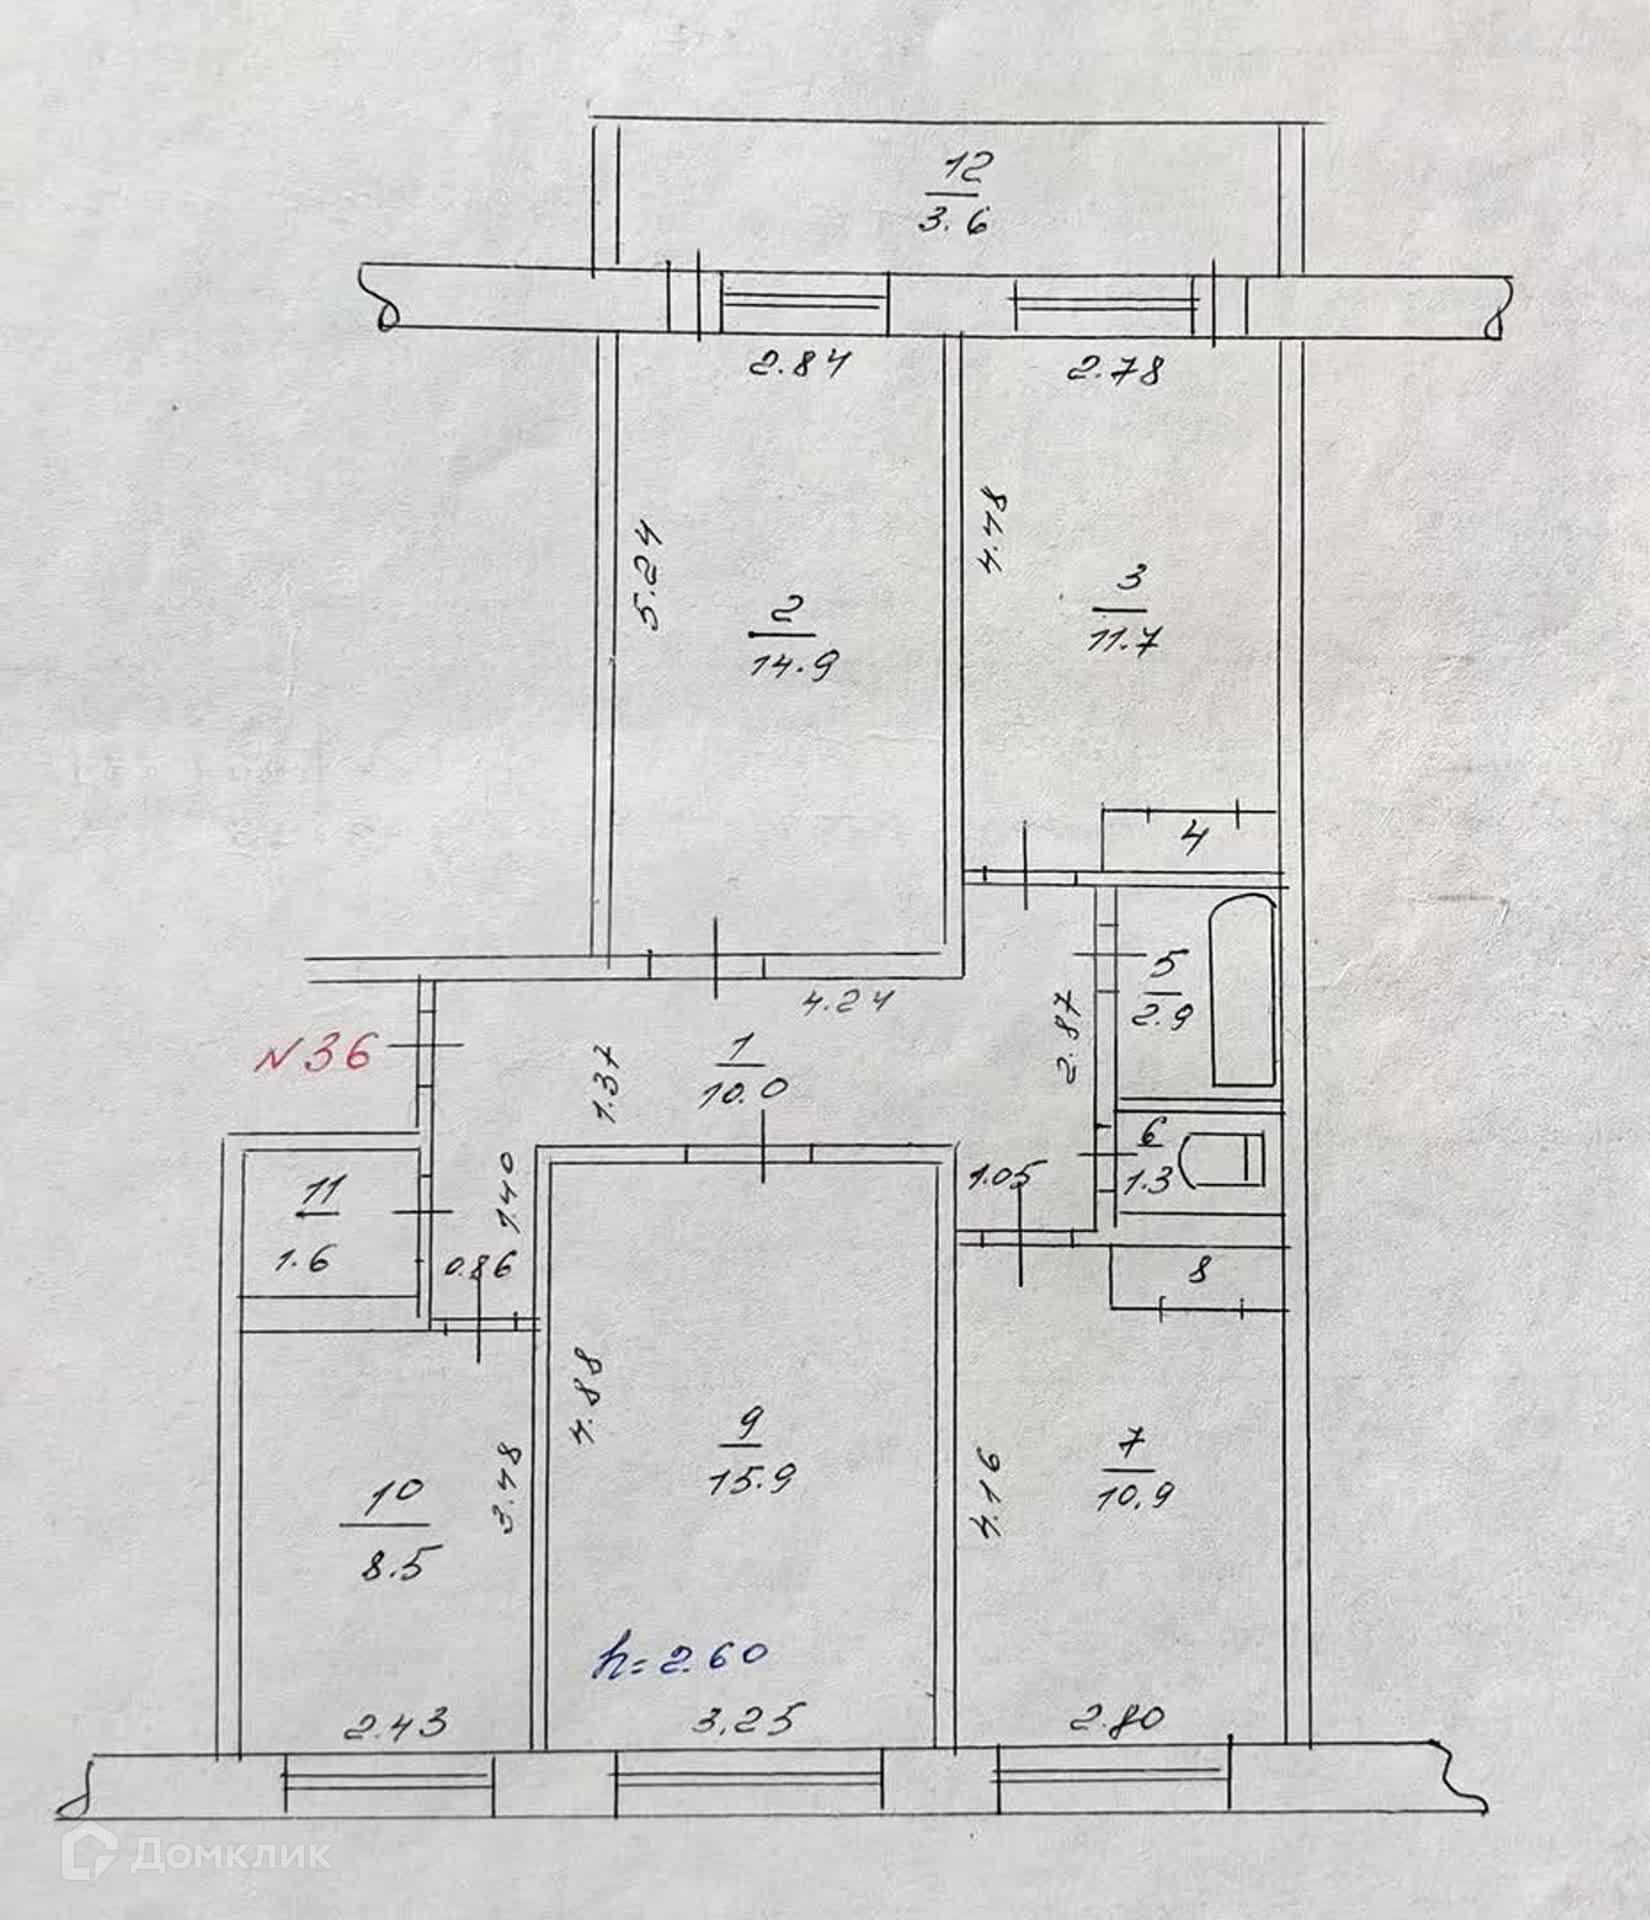 12
3.6
2.84
2.78
5.24
4.48
2
14.9
3
11.7
4
4.24
5
2.9
2.87
N36
1
10.0
1.37
6
1.3
1.05
11
1.6
1.40
0.86
8
4.88
3.48
4.16
9
15.9
7
10.9
10
8.5
h=2.60
2.43
3.25
2.80
Домклик